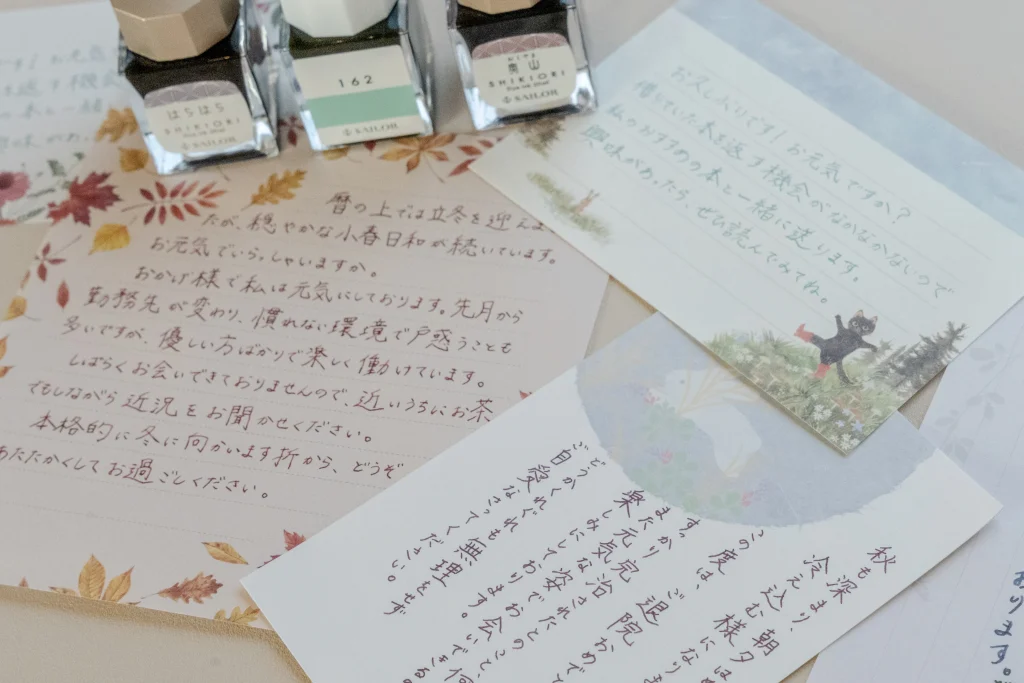 はらはら
SHIKIORI
SAILOR
162
SAILOR
おくやま
奥山
SHIKIORI
SAILOR
暦の上では立冬を迎えま
たが、穏やかな小春日和が続いています。
お元気でいらっしゃいますか。
おかげ様で私は元気にしております。先月から
勤務先が変わり、慣れない環境で戸惑うことも
多いですが、優しい方ばかりで楽しく働けています。
しばらくお会いできておりませんので、近いうちにお茶
でもしながら近況をお聞かせください。
本格的に冬に向かいます折から、どうぞ
あたたかくしてお過ごしください。
お久しぶりです!お元気ですか?
借りていた本を返す機会がなかなかないので
私のおすすめの本と一緒に送ります。
興味があったら、ぜひ読んでみてね。
秋も深まり、朝夕は
冷え込む様になりま
この度は、ご退院おめで
すっかり完治されたとのこと、何
また元気な姿でお会いできる
楽しみにしております。
どうかくれぐれも無理をせず
ご自愛なさってください。
おります。